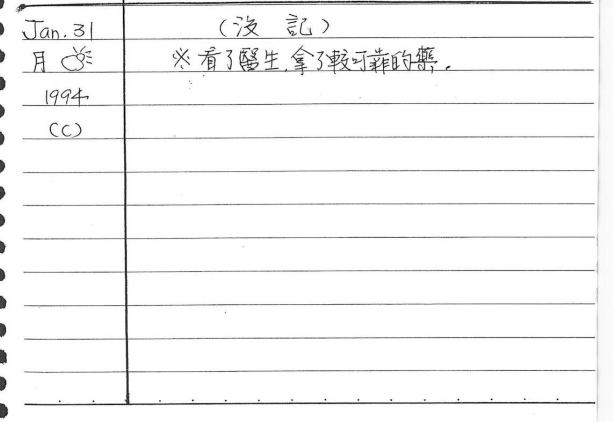 Jan. 31
(沒 記)
月
※看了醫生,拿了較可靠的藥。
1994
(C)